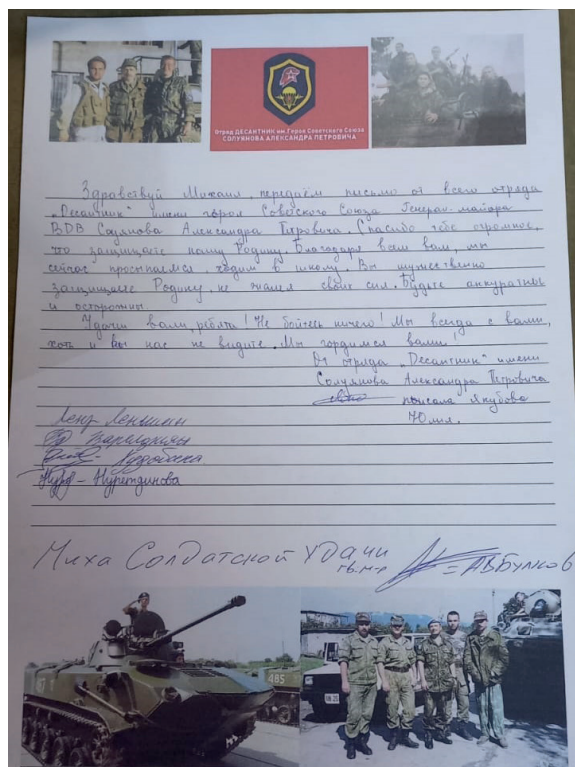 Отряд ДЕСАНТНИК им. Героя Советского Союза
СОЛУЯНОВА АЛЕКСАНДРА ПЕТРОВИЧА
Здравствуй Михаил, передаём письмо от всего отряда
„Десантник" имени героя Советского Союза Генерал-майора
ВДВ Солуянова Александра Петровича. Спасибо тебе огромное,
что защищаете нашу Родину. Благодаря всем вам, мы
сейчас просыпаемся, ходим в школу. Вы мужественно
защищаете Родину, не жалея своих сил. Будьте аккуратны
и осторожны.
Удачи вам, ребята! Не бойтесь ничего! Мы всегда с вами,
хоть и вы нас не видите. Мы гордимся вами!
От отряда „Десантник" имени
Солуянова Александра Петровича
писала Якубова
Юлия.
Нуретдинова
Миха Солдатской Удачи
гв. м-р
=АВБулков
485